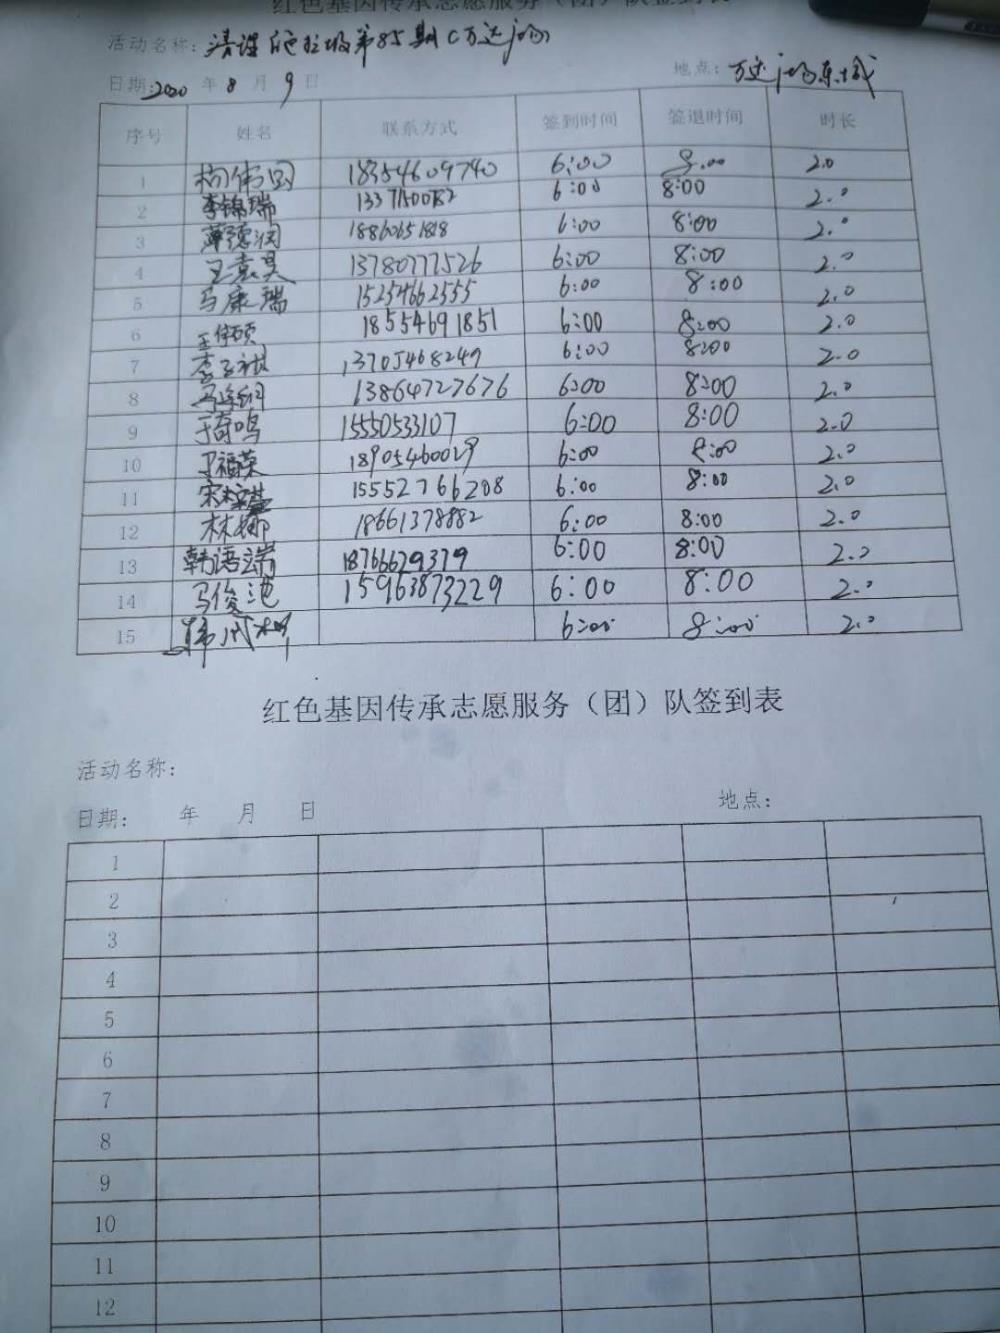 红色基因传承志愿服务（团）队签到表
活动名称：清理 垃圾第85期（万达广场）
日期：2020年8月9日 地点：万达广场东城
序号 姓名 联系方式 签到时间 签退时间 时长
1 杨伟国 18354609740 6:00 8:00 2.0
2 李锦瑞 6:00 8:00 2.0
3 薄德润 6:00 8:00 2.0
4 王袁昊 13780777526 6:00 8:00 2.0
5 马康瑞 15254662555 6:00 8:00 2.0
6 王伟硕 18554691851 6:00 8:00 2.0
7 13705468249 6:00 8:00 2.0
8 13864727676 6:00 8:00 2.0
9 于奇鸣 15550533107 6:00 8:00 2.0
10 马福荣 18905460029 6:00 8:00 2.0
11 15552766208 6:00 8:00 2.0
12 林娜 18661378882 6:00 8:00 2.0
13 韩语端 18766629379 6:00 8:00 2.0
14 马俊池 15963873229 6:00 8:00 2.0
15 6:00 8:00 2.0
红色基因传承志愿服务（团）队签到表
活动名称：
日期： 年 月 日 地点：
1
2
3
4
5
6
7
8
9
10
11
12